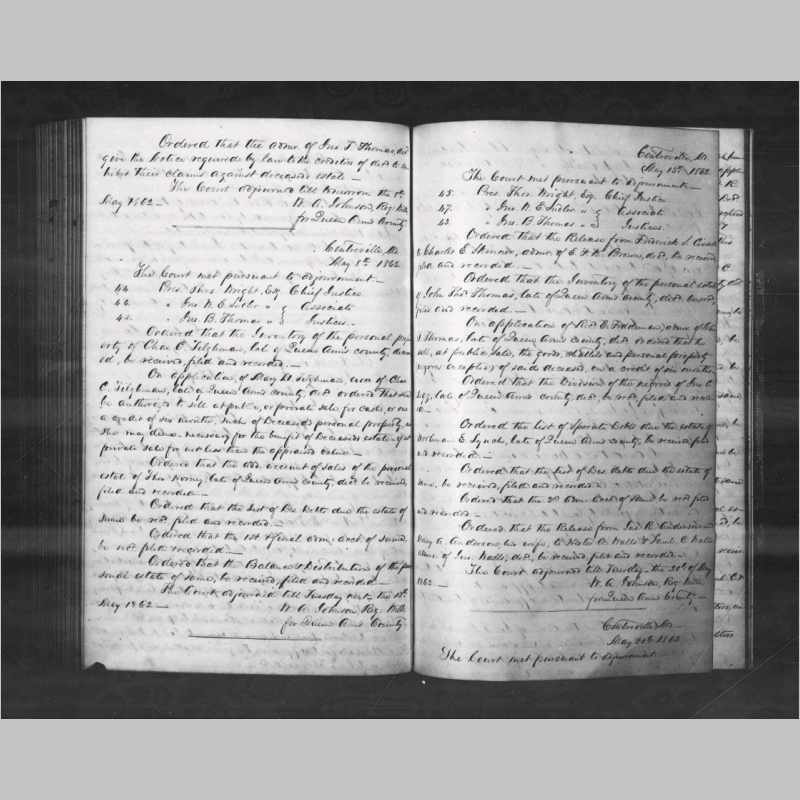 Ordered that the admr. of Jno. T. Thomas, dcd
give the Notice required by law to the creditors of decd. to
their claims against deceased's estate —
The Court adjourned till tomorrow the 8th
May 1862 — W. A. Johnson, Reg. Wills
for Queen Anns County
Centreville, Md.
May 8th 1862
The Court met pursuant to adjournment —
44 Pres. Thos. Wright, Esq. Chief Justice
" Jno. W. E. Sudler " } Associate
" Jno. B. Thomas " } Justices.
Ordered that the Inventory of the personal prop-
erty of Chas. C. Tilghman, late of Queen Anns county, deceas
ed, be received, filed and recorded. —
On application, of Mary Tilghman, of Chas
C. Tilghman, late of Queen Anns county, decd. ordered that she
be authorized to sell at public, or private sale, for cash, or on
a credit of six months, such of Deceased's personal property, as
she may deem necessary for the benefit of Deceased's estate, if at
private sale for not less than the appraised value —
Ordered that the add. account of sales of the personal
estate of Thos. late of Queen Anns county, decd. be received,
filed and recorded —
Ordered that the List of Des. Debts due the estate of
same be recd. filed and recorded. —
Ordered that the 1st & final adm. acct. of same,
be recd. filed & recorded. —
Ordered that the Balance & Distribution of the per
sonal estate of same, be received, filed and recorded —
The Court adjourned till Tuesday next, the 13th
May 1862 — W. A. Johnson, Reg. Wills
for Queen Anns County
Centreville, Md.
May 13th, 1862
The Court met pursuant to adjournment —
45. Pres. Thos. Wright, Esq. Chief Justice
47. " Jno. W. E. Sudler " } Associate
43. " Jno. B. Thomas " } Justices.
Ordered that the Release from Frederick
Charles E. Skinner, admr. of Browne, decd., be received
filed and recorded —
Ordered that the Inventory of the personal estate
of John Thos. Thomas, late of Queen Anns county, decd.
filed and recorded. —
On application of admr. of Jno.
T. Thomas, late of Queen Anns county, decd. ordered that he
sell, at public sale, the goods, chattels and personal property
negroes excepted, of said deceased, on a credit of six months
Ordered that the Division of the negroes of Jno. C.
late of Queen Anns county, decd., be recd. filed and record
ed —
Ordered the List of Sperate Debts due the estate of
E. Lynch, late of Queen Anns county, be received, filed
and recorded —
Ordered that the List of Des. debts due the estate of
same, be received, filed and recorded —
Ordered that the 2d Adm. Acct. of same be recd. filed
and recorded —
Ordered that the Release from Jas. R. Anderson
Mary A. Anderson, his wife, to Hester A. Walls
of Jno. Walls, decd., be received filed and recorded —
The Court adjourned till Tuesday, the 20th of May
1862 — W. A. Johnson Reg. Wills
for Queen Anns County —
Centreville, Md —
May 20th 1862
The Court met pursuant to adjournment